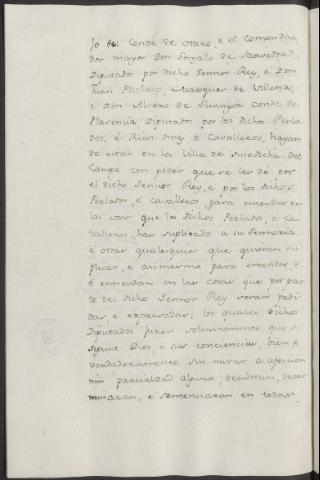 jo del Conde de Haro, e el comenda
dor mayor Don Gonzalo de Saavedra,
Diputados por dicho Sennor Rey, e Don
Juan Pacheco, Marques de Villena,
e Don Alvaro de Stunniga Conde de
Plasencia Diputado por los dichos Perla
dos, e Ricos omes, e Cavalleros, hayan
de estar en la Villa de susodicha del
Campo con poder que se les dé por
el dicho Sennor Rey, e por los dichos
Perlados, e cavalleros, para entender en
las cosas que los dichos Perlados, e Ca
valleros, han suplicado a su Sennoria,
e otras qualesquier que quieran su
plicar, e asimesmo para entender, e
é entiendan en las cosas que por par
te del dicho Sennor Rey seran pedi
das, e expresadas; los quales dichos
Diputados juren solennemente que
segunt Dios é sus conciencias, bien, e
verdaderamente sin mirar a afeccion
nin parcialidad alguna, decidiran, deter
minaran, e sentenciaran en todas